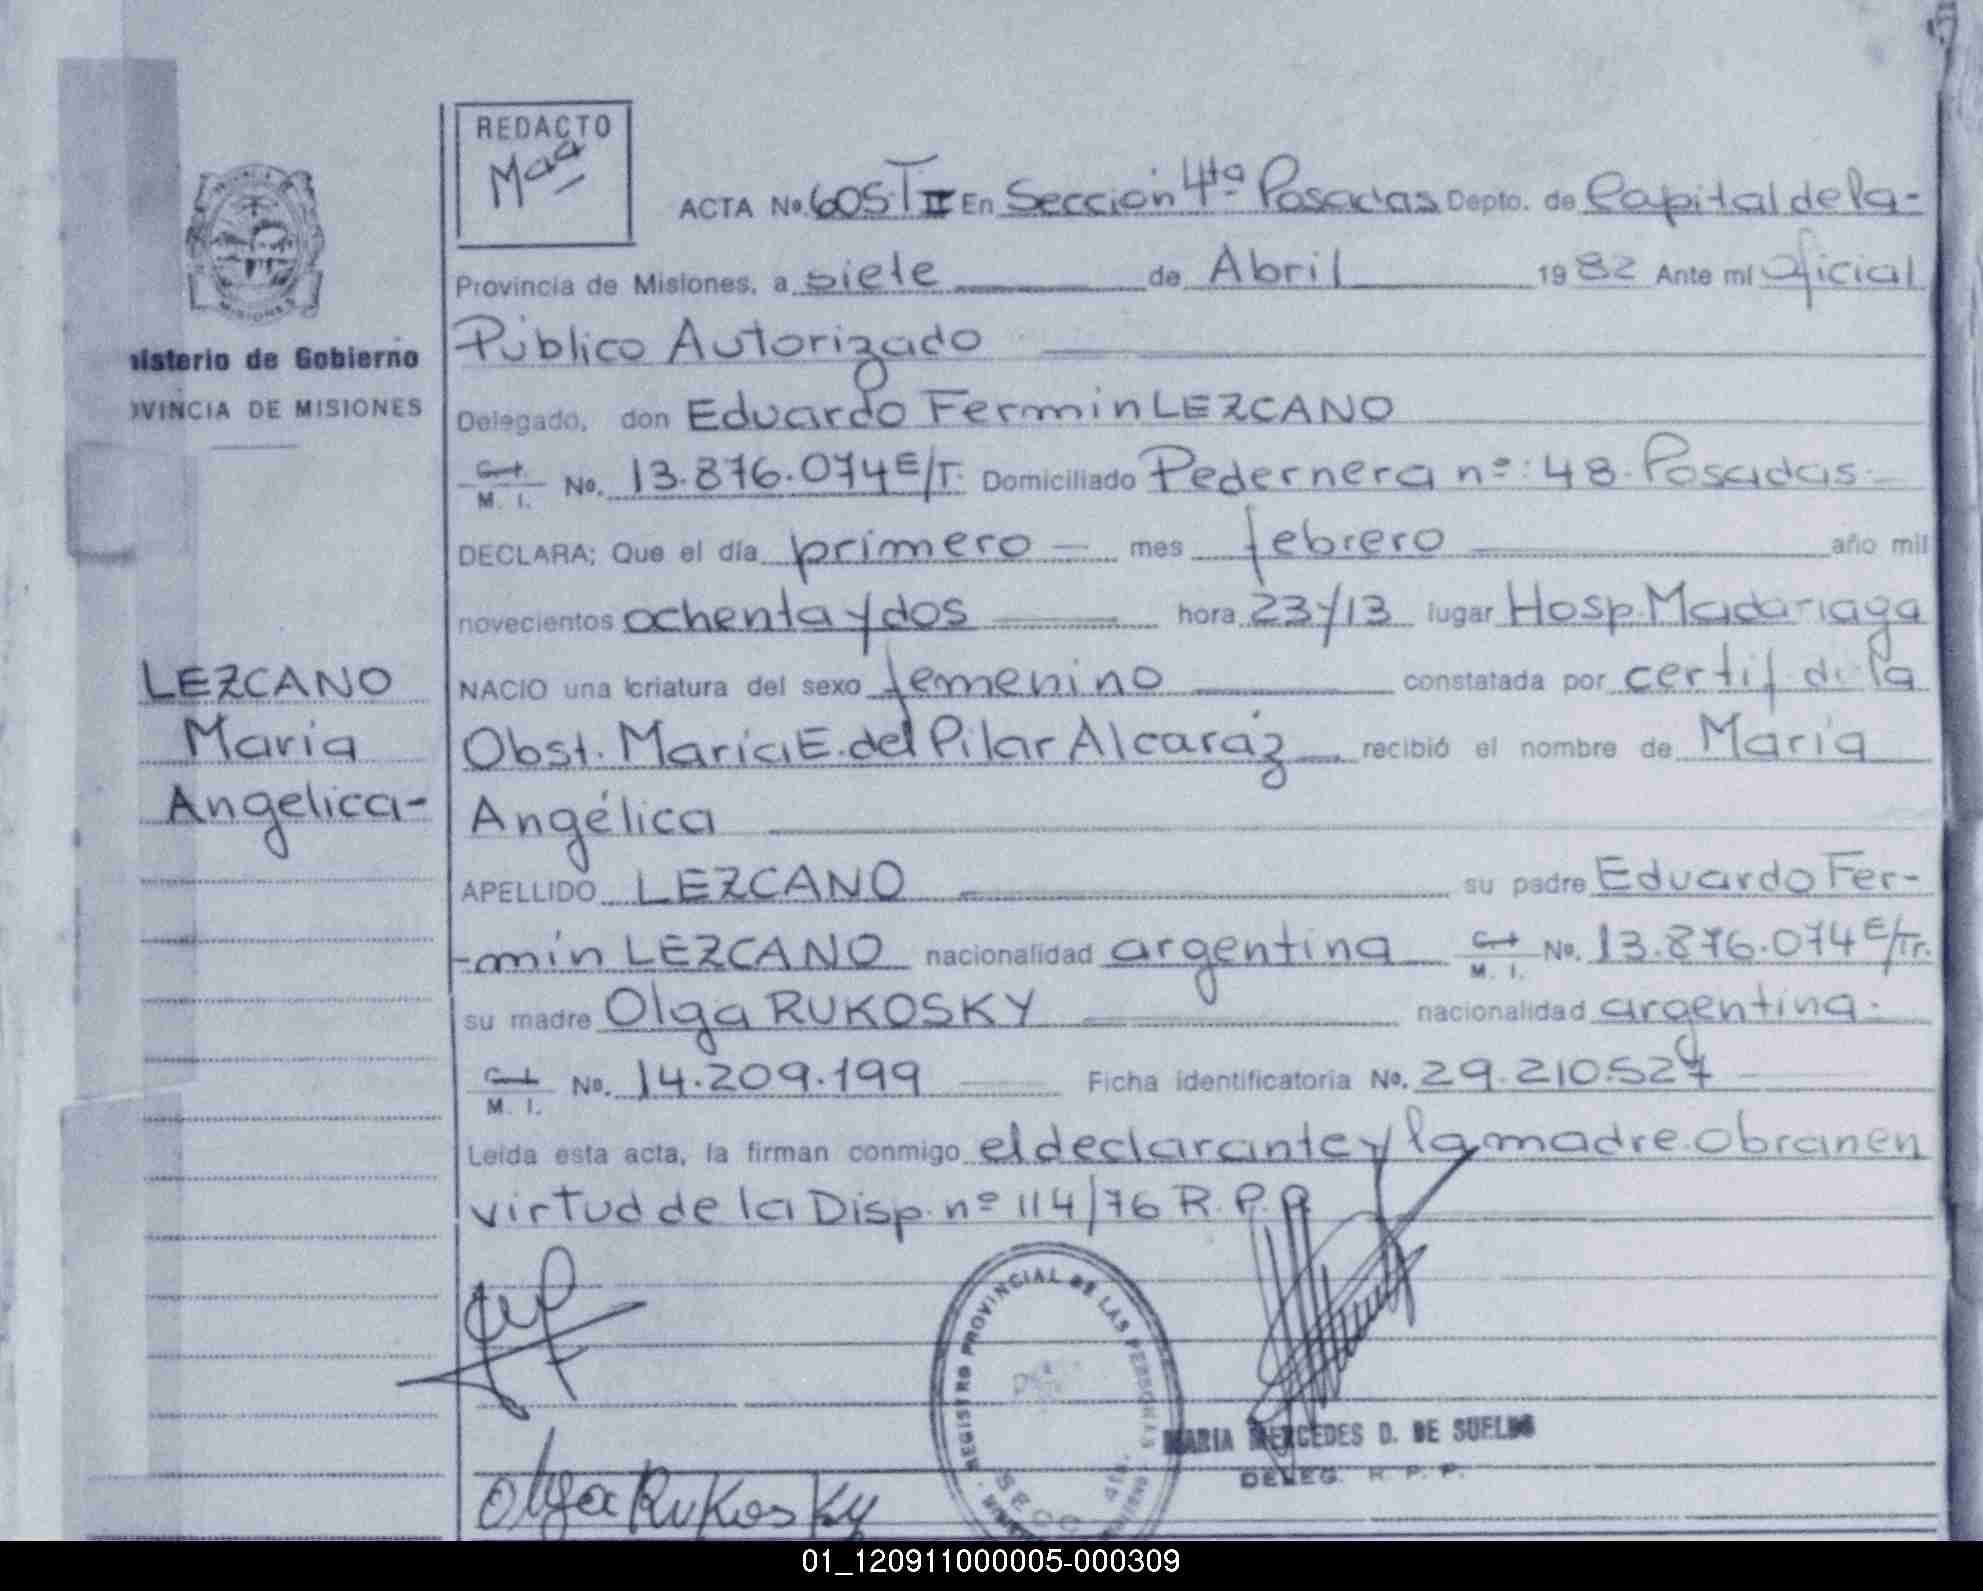 REDACTO
Maa
ACTA No. 605. T II En Sección 4ta Posadas Depto. de Capital de la-
Provincia de Misiones, a siete de Abril 1982 Ante mí Oficial
Público Autorizado
Delegado, don Eduardo Fermin LEZCANO
M. I. No. 13.876.074 E/T. Domiciliado Pedernera nº: 48. Posadas-
DECLARA; Que el día primero — mes febrero año mil
novecientos ochenta y dos hora 23 y 13 lugar Hosp. Madariaga
NACIO una criatura del sexo femenino constatada por certif. de la
Obst. María E. del Pilar Alcaráz recibió el nombre de María
Angélica
APELLIDO LEZCANO su padre Eduardo Fer-
-mín LEZCANO nacionalidad argentina M. I. No. 13.876.074 E/Tr.
su madre Olga RUKOSKY nacionalidad argentina.
M. I. No. 14.209.199 Ficha identificatoria No. 29.210.527
Leída esta acta, la firman conmigo el declarante y la madre. Obran en
virtud de la Disp. nº 114/76 R. P. P.
MISIONES
nisterio de Gobierno
OVINCIA DE MISIONES
LEZCANO
Maria
Angelica-
REGISTRO PROVINCIAL DE LAS PERSONAS
SECC 4ta.
MARIA MERCEDES D. DE SUELDO
DELEG. R. P. P.
Olga Rukosky
01_120911000005-000309